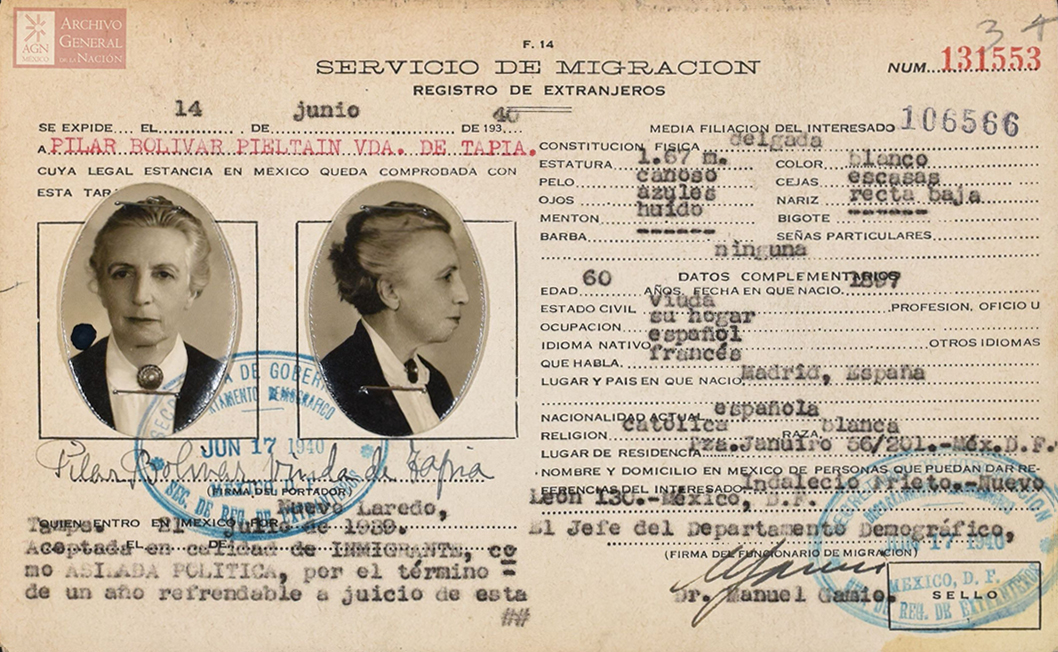 AGN
MÉXICO
ARCHIVO
GENERAL
DE LA NACIÓN
3
F. 14
SERVICIO DE MIGRACION
NUM. 131553
REGISTRO DE EXTRANJEROS
SE EXPIDE EL 14 DE junio DE 1940
A PILAR BOLIVAR PIELTAIN VDA. DE TAPIA.
CUYA LEGAL ESTANCIA EN MEXICO QUEDA COMPROBADA CON
ESTA TAR
Pilar Bolivar Viuda de Tapia
(FIRMA DEL PORTADOR)
QUIEN ENTRO EN MEXICO POR Nuevo Laredo,
Tamps. El julio de 1939.
EL DE
Aceptada en calidad de INMIGRANTE, co
mo ASILADA POLITICA, por el término =
de un año refrendable a juicio de esta
##
JUN 17 1940
MEDIA FILIACION DEL INTERESADO 106566
CONSTITUCION FISICA delgada
ESTATURA 1.67 m. COLOR blanco
PELO canoso CEJAS escasas
OJOS azules NARIZ recta baja
MENTON huído BIGOTE ------
BARBA ------ SEÑAS PARTICULARES
ninguna
DATOS COMPLEMENTARIOS
EDAD 60 AÑOS. FECHA EN QUE NACIO. 1897
ESTADO CIVIL viuda PROFESION, OFICIO U
OCUPACION su hogar
IDIOMA NATIVO español OTROS IDIOMAS
QUE HABLA. francés
LUGAR Y PAIS EN QUE NACIO Madrid, España
NACIONALIDAD ACTUAL española
RELIGION católica RAZA blanca
LUGAR DE RESIDENCIA Pza.Januiro 56/201.-Méx.D.F.
NOMBRE Y DOMICILIO EN MEXICO DE PERSONAS QUE PUEDAN DAR RE-
FERENCIAS DEL INTERESADO Indalecio Prieto.-Nuevo
León 130.-México, D.F.
El Jefe del Departamento Demográfico,
(FIRMA DEL FUNCIONARIO DE MIGRACION)
Dr. Manuel Gamio.
SELLO
17 1940
MEXICO, D. F.